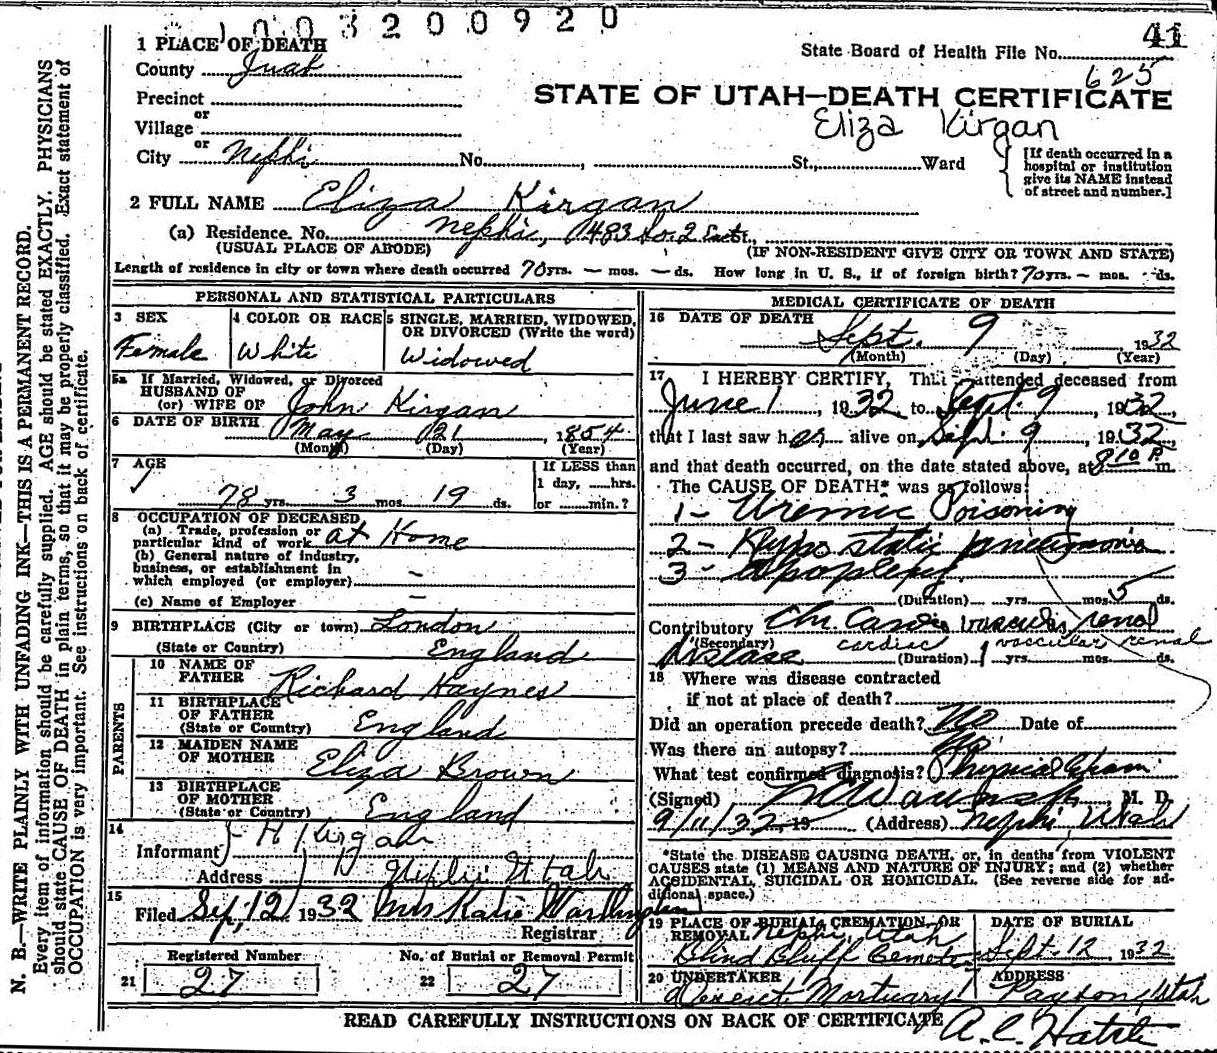 1003200920
41
1 PLACE OF DEATH
County Juab
State Board of Health File No.
625
Precinct
or
Village
or
City Nephi No. , St., Ward
STATE OF UTAH—DEATH CERTIFICATE
Eliza Kirgan
[If death occurred in a
hospital or institution
give its NAME instead
of street and number.]
2 FULL NAME Eliza Kirgan
(a) Residence. No. Nephi, 483 So. 2 East.,
(USUAL PLACE OF ABODE) (IF NON-RESIDENT GIVE CITY OR TOWN AND STATE)
Length of residence in city or town where death occurred 70 yrs. — mos. — ds. How long in U. S., if of foreign birth? 70 yrs. — mos. - ds.
PERSONAL AND STATISTICAL PARTICULARS
3 SEX
Female
4 COLOR OR RACE
White
5 SINGLE, MARRIED, WIDOWED,
OR DIVORCED (Write the word)
Widowed
5a If Married, Widowed, or Divorced
HUSBAND OF
(or) WIFE OF John Kirgan
6 DATE OF BIRTH May 21, 1854
(Month) (Day) (Year)
7 AGE
78 yrs. 3 mos. 19 ds.
If LESS than
1 day, ......hrs.
or ......min.?
8 OCCUPATION OF DECEASED
(a) Trade, profession or
particular kind of work at Home
(b) General nature of industry,
business, or establishment in
which employed (or employer) —
(c) Name of Employer —
9 BIRTHPLACE (City or town) London
(State or Country) England
PARENTS
10 NAME OF
FATHER Richard Haynes
11 BIRTHPLACE
OF FATHER
(State or Country) England
12 MAIDEN NAME
OF MOTHER Eliza Brown
13 BIRTHPLACE
OF MOTHER
(State or Country) England
14
Informant H Kirgan
Address Nephi Utah
15
Filed Sep, 12, 1932 Mrs Katie Worthington
Registrar
Registered Number
21 27
No. of Burial or Removal Permit
22 27
MEDICAL CERTIFICATE OF DEATH
16 DATE OF DEATH
Sept. 9 1932
(Month) (Day) (Year)
17 I HEREBY CERTIFY, That I attended deceased from
June 1, 1932 to Sept. 9, 1932,
that I last saw her alive on Sept. 9, 1932,
and that death occurred, on the date stated above, at 8 10 P. m.
The CAUSE OF DEATH* was as follows:
1- Uremic Poisoning
2- Hypo static pneumonia
3- apoplexy.
(Duration) yrs. mos. 5 ds.
Contributory Chr. Cardio vascular renal
(Secondary) cardiac vascular renal
Disease (Duration) 1 yrs. mos. ds.
18 Where was disease contracted
if not at place of death?
Did an operation precede death? No Date of
Was there an autopsy? No
What test confirmed diagnosis? Physical Exam
(Signed) M. D.
9/11/32, 19 (Address) Nephi, Utah
*State the DISEASE CAUSING DEATH, or, in deaths from VIOLENT
CAUSES state (1) MEANS AND NATURE OF INJURY; and (2) whether
ACCIDENTAL, SUICIDAL OR HOMICIDAL. (See reverse side for ad-
ditional space.)
19 PLACE OF BURIAL, CREMATION, OR
REMOVAL Nephi, Utah
Bluff Cemetery
DATE OF BURIAL
Sept. 12, 1932
20 UNDERTAKER
Deseret Mortuary
ADDRESS
Payson, Utah
READ CAREFULLY INSTRUCTIONS ON BACK OF CERTIFICATE
A. C. Hatch
N. B.—WRITE PLAINLY WITH UNFADING INK—THIS IS A PERMANENT RECORD.
Every item of information should be carefully supplied. AGE should be stated EXACTLY. PHYSICIANS
should state CAUSE OF DEATH in plain terms, so that it may be properly classified. Exact statement of
OCCUPATION is very important. See instructions on back of certificate.